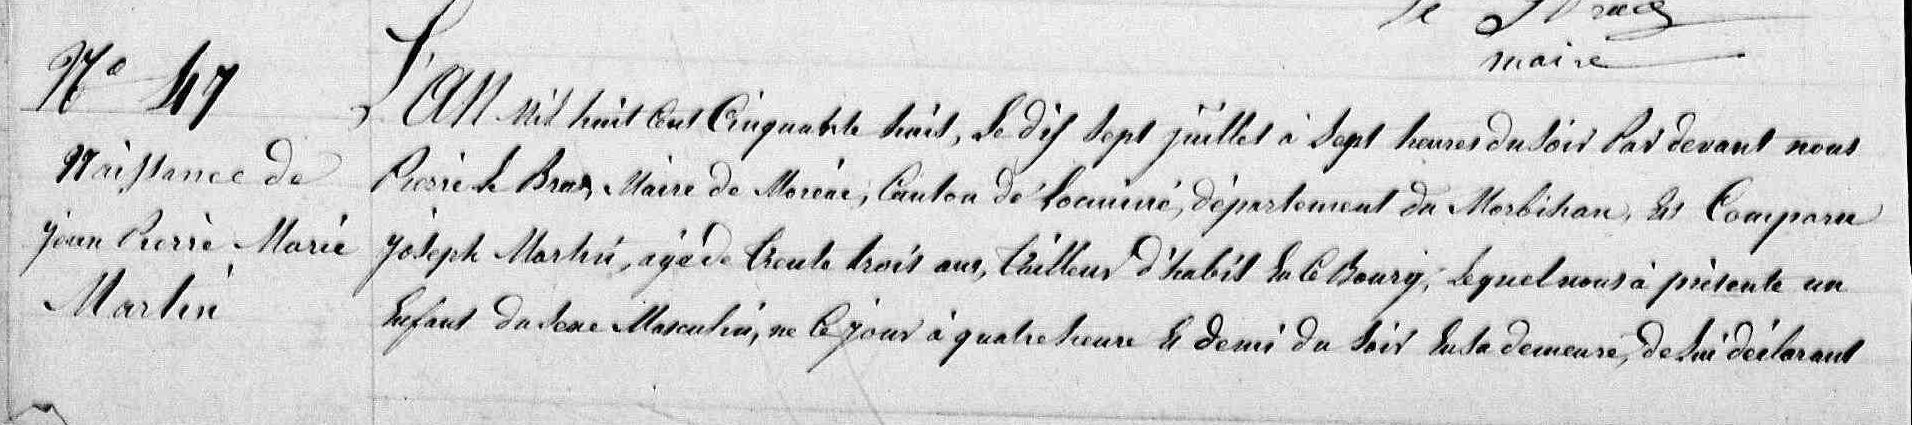 maire
N° 47
Naissance de
jean Pierre Marie
Martin
L'AN Mil huit Cent Cinquante huit, Le dix sept juillet à Sept heures du Soir Par devant nous
Pierre le Bras, Maire de Moréac, Canton de Locminé, département du Morbihan, Est Comparu
joseph Martin, agé de trente trois ans, tailleur d'habit En Ce Bourg, Lequel nous à présenté un
Enfant du Sexe Masculin, né Ce jour à quatre heure Et demi du Soir En sa demeure, de lui déclarant